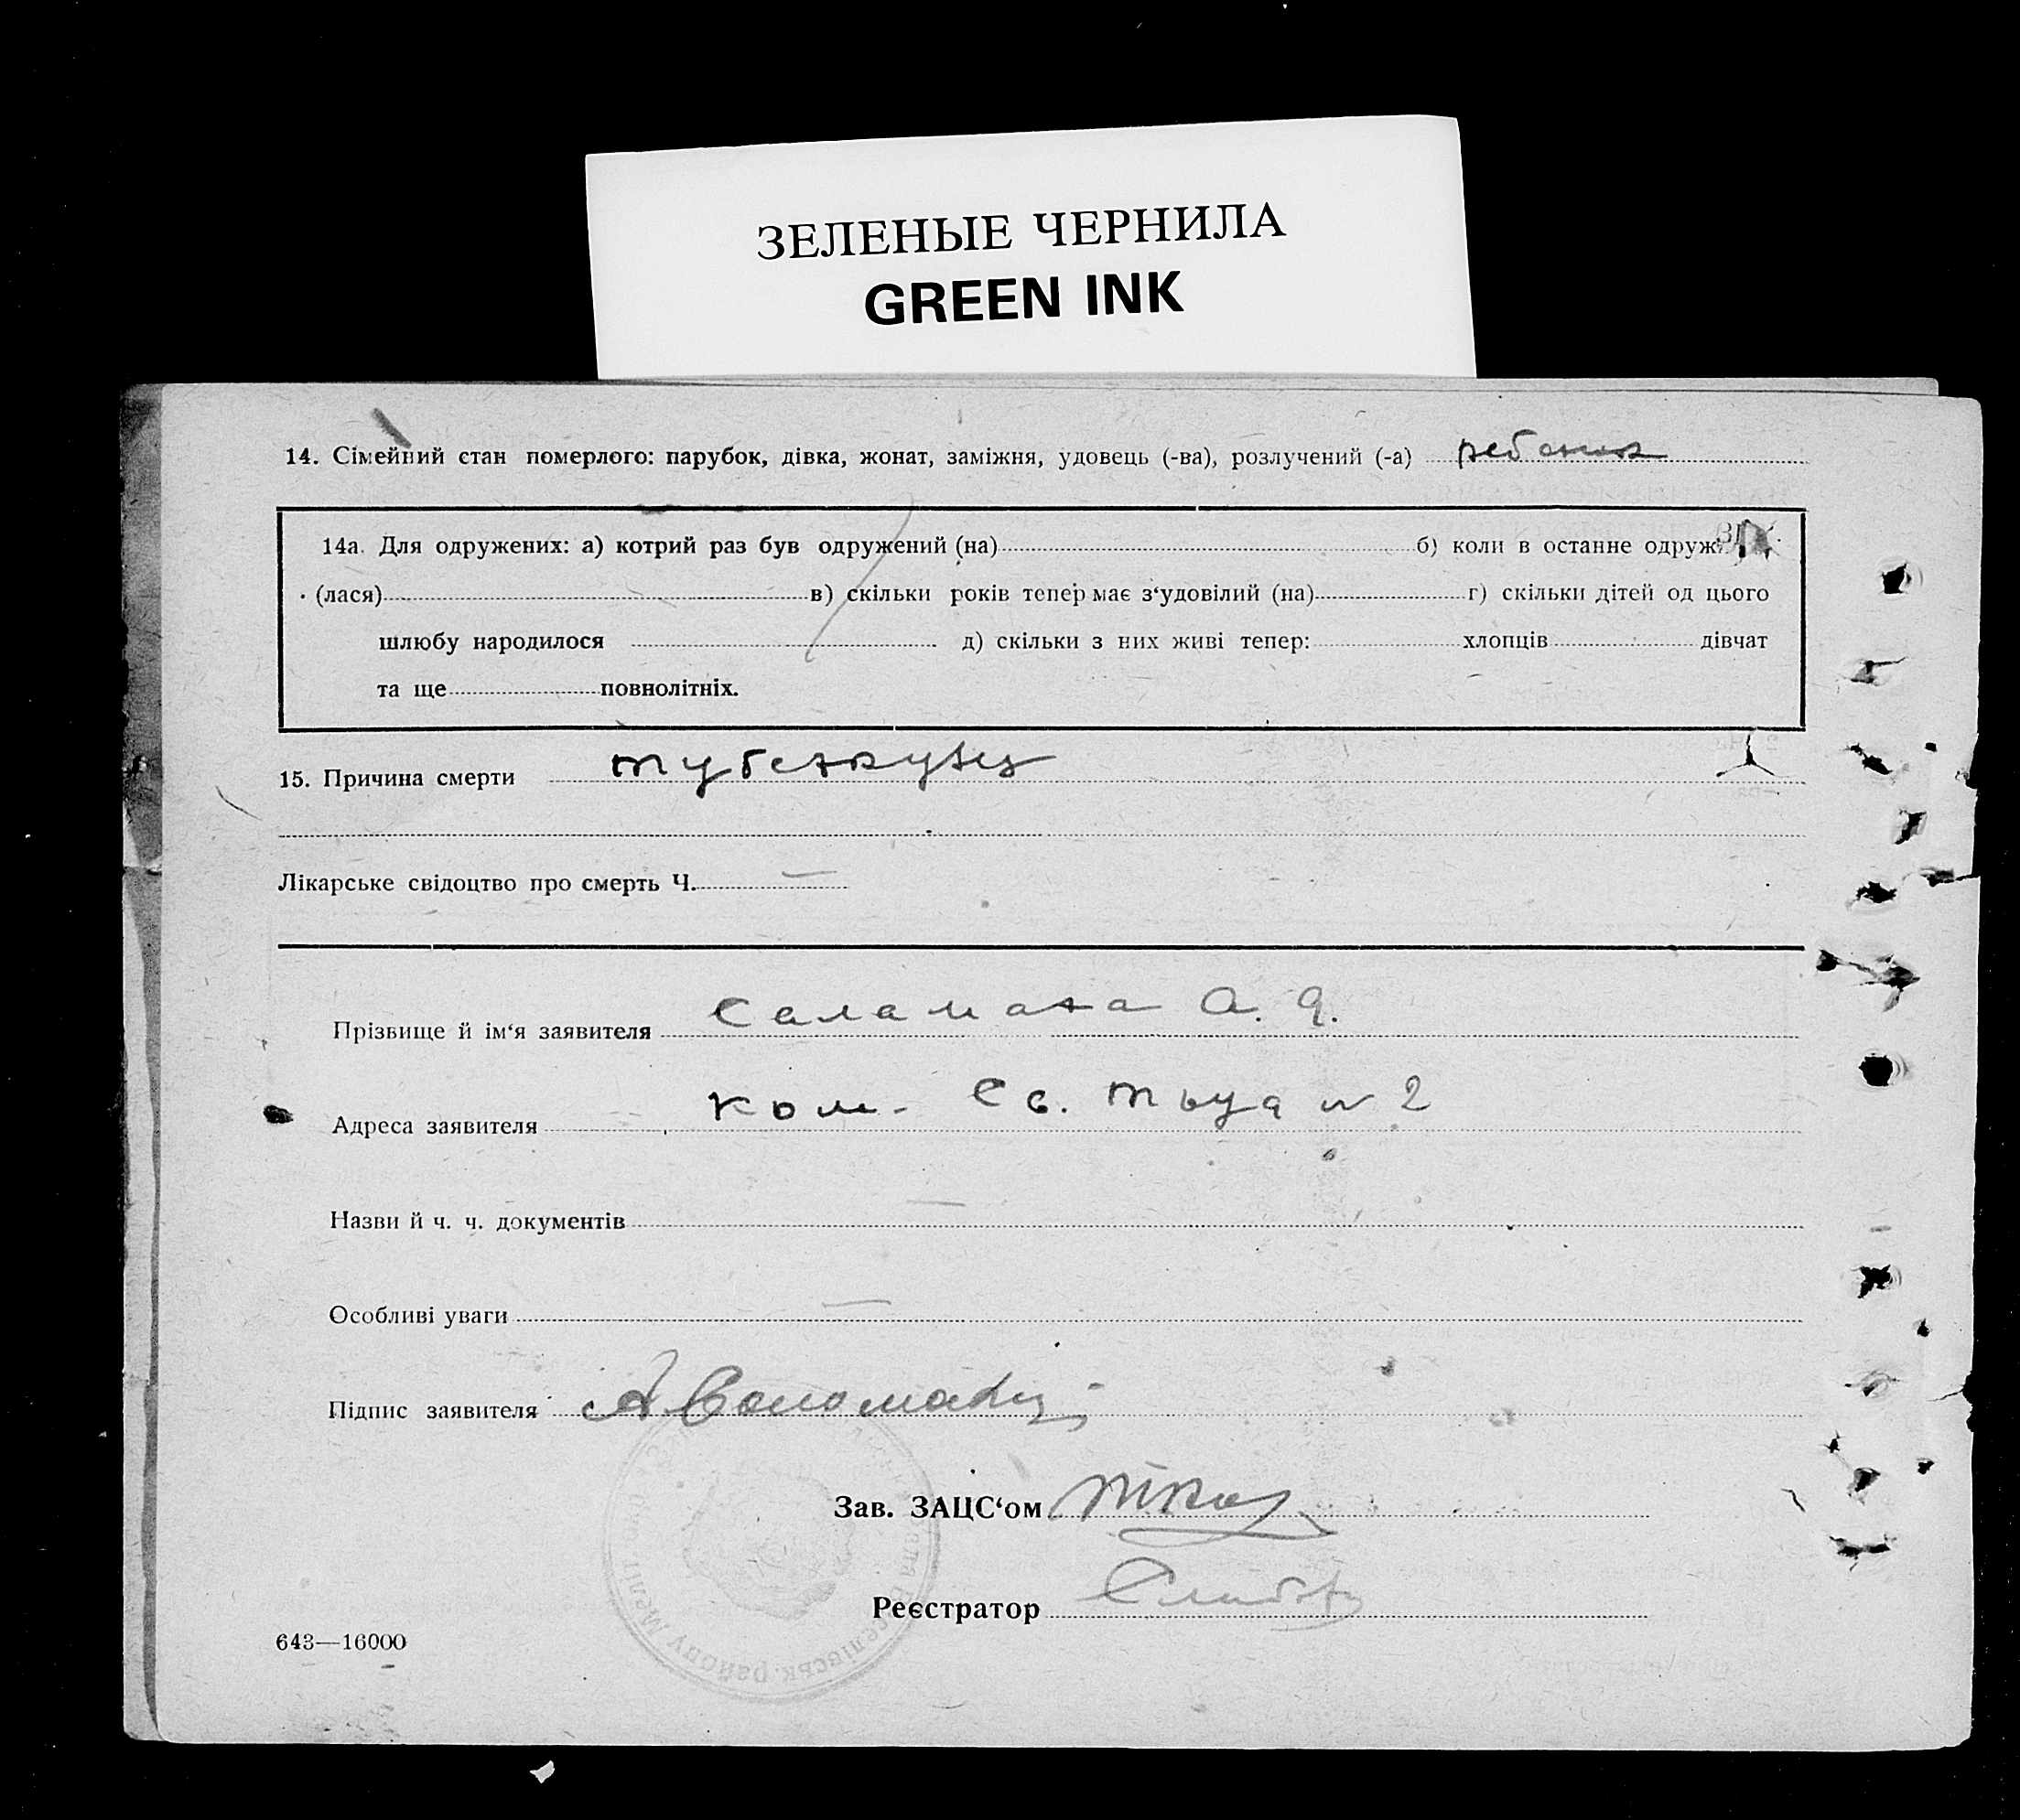 ЗЕЛЕНЫЕ ЧЕРНИЛА
GREEN INK
14. Сімейний стан померлого: парубок, дівка, жонат, заміжня, удовець (-ва), розлучений (-а) ребенок
14а. Для одружених: а) котрий раз був одружений (на) б) коли в останне одруж
(лася) в) скільки років тепер має з‘удовілий (на) г) скільки дітей од цього
шлюбу народилося д) скільки з них живі тепер: хлопців дівчат
та ще повнолітніх.
15. Причина смерти туберкулез
Лікарське свідоцтво про смерть Ч. —
Прізвище й ім‘я заявителя Саламаха А. Я.
Адреса заявителя ком. Св. труд № 2
Назви й ч. ч. документів —
Особливі уваги —
Підпис заявителя А
Зав. ЗАЦС‘ом
Реєстратор
643—16000